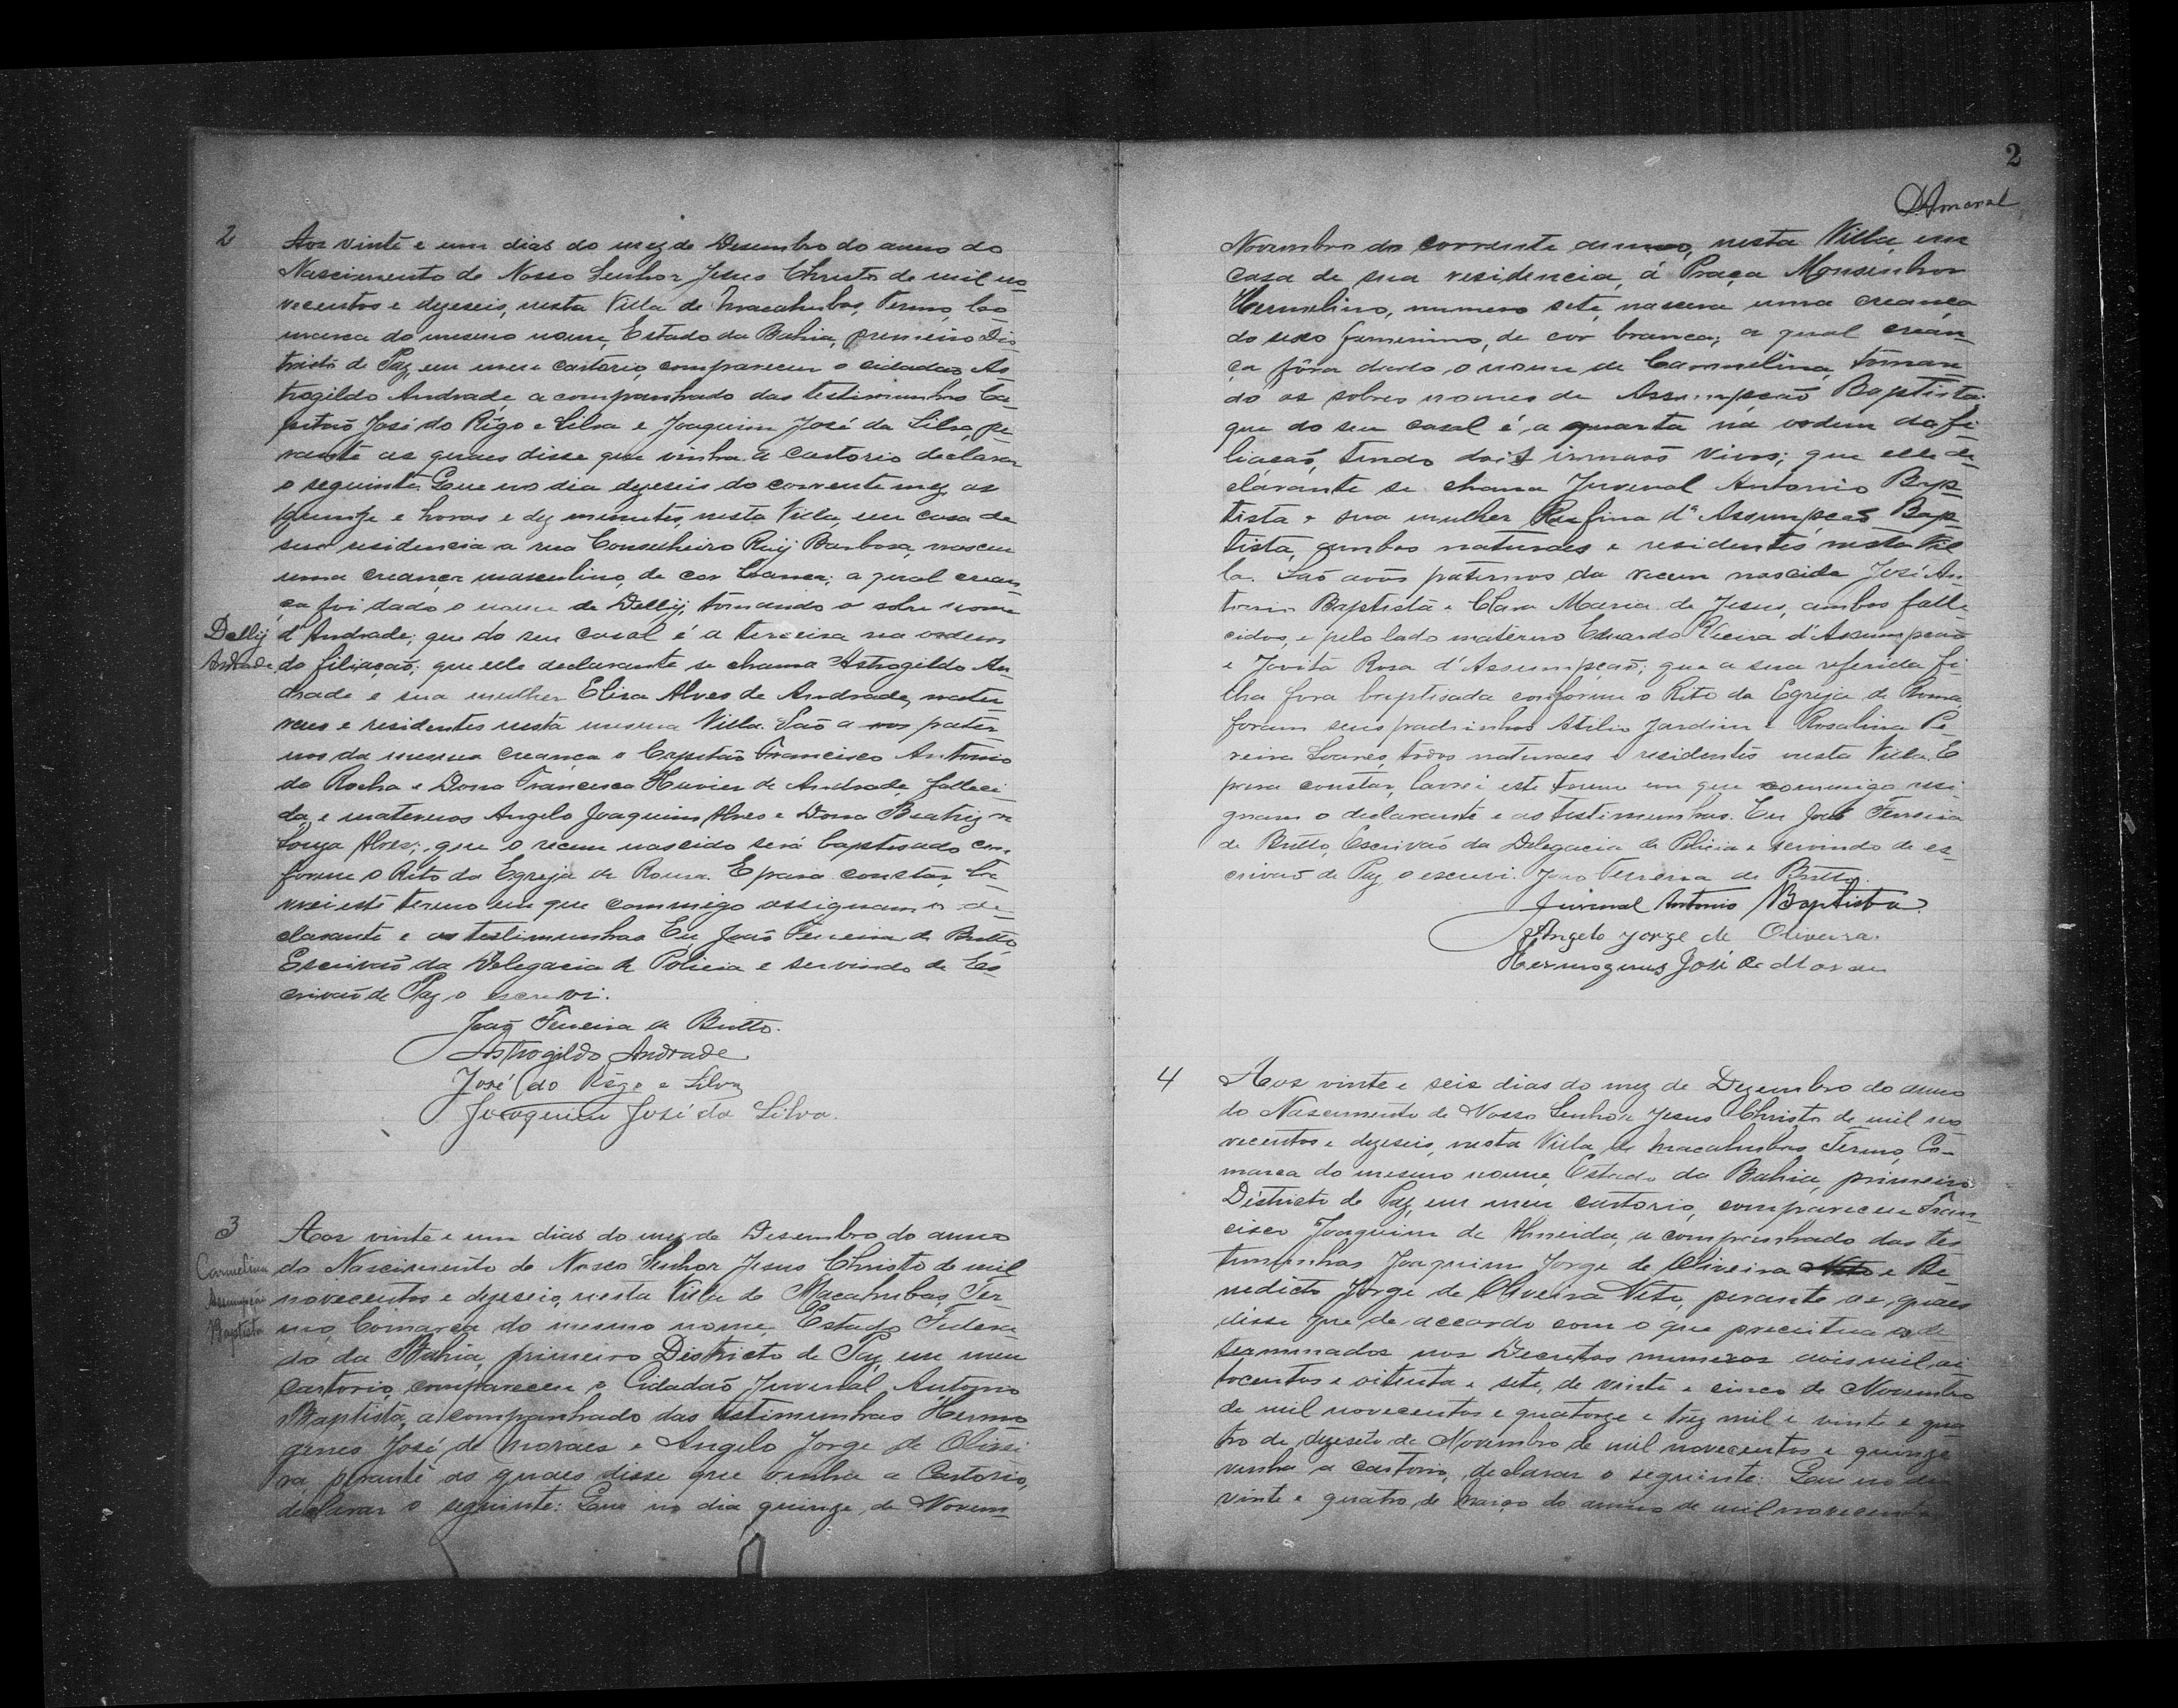 2
Aos vinte e um dias do mez de Desembro do anno do
Nascimento de Nosso Senhor Jesus Christo de mil no
vecentos e dezeseis, nesta Villa de Macahubas, Termo, Co
marca do mesmo nome, Estado da Bahia, primeiro Dis
tricto de Paz, em meu cartorio, compareceu o cidadão As
trogildo Andrade, acompanhado das testimunhas Ca
pitão José do Rêgo e Silva e Joaquim José da Silva, pe
rante as quaes disse que vinha a cartorio declarar
o seguinte: Que no dia dezeseis do corrente mez, as
quinze e horas e dez minutos, nesta Villa, em casa de
sua residencia a rua Conselheiro Ruy Barbosa, nasceu
uma creança masculino, de cor branca; a qual crean
ça foi dado o nome de Delly, tomando o sobre nome
Delly
Andrade
d'Andrade; que do seu casal é a terceira na ordem
da filiação; que elle declarante se chama Astrogildo An
drade e sua mulher Elisa Alves de Andrade, natu
raes e residentes nesta mesma Villa. São avos pater
nos da mesma creança o Capitão Francisco Antonio
da Rocha e Dona Francisca Xavier de Andrade, falleci
da, e maternos Angelo Joaquim Alves e Dona Beatriz
Souza Alves; que o recem nascido será baptisado con
forme o Rito da Egreja de Roma. E para constar, la
vrei este termo em que commigo assignam o de
clarante e as testimunhas. Eu João Ferreira de Britto,
Escrivão da Delegacia de Policia e servindo de Es
crivão de Paz o escrevi.
João Ferreira de Britto.
Astrogildo Andrade
José do Rêgo e Silva
Joaquim José da Silva.
3
Carmelina
Assumpção
Baptista
Aos vinte e um dias do mez de Desembro do anno
do Nascimento de Nosso Senhor Jesus Christo de mil
novecentos e dezeseis, nesta Villa de Macahubas, Ter
mo, Comarca do mesmo nome, Estado Federa
do da Bahia, primeiro Districto de Paz, em meu
cartorio, compareceu o Cidadão Juvenal Antonio
Baptista, acompanhado das testimunhas Hermo
genes José de Moraes e Angelo Jorge de Olivei
ra, perante as quaes disse que vinha a Cartorio,
declarar o seguinte: Que no dia quinze de Novem
2
D'Amaral
Novembro do corrente anno, nesta Villa, em
casa de sua residencia, á Praça Monsenhor
Hermelino, numero sete, nascera uma creança
do sexo femenino, de côr branca; a qual crean
ça fôra dado o nome de Carmelina, toman
do os sobres nomes de Assumpção Baptista
que do seu casal é a quarta na ordem da fi
liação, tendo dois irmaõs vivos; que elle de
clarante se chama Juvenal Antonio Bap
tista e sua mulher Rufina d'Assumpção Bap
tista, ambos naturaes e residentes nesta Vil
la. São avós paternos da recem nascida José An
tonio Baptista e Clara Maria de Jesus, ambos falle
cidos, e pelo lado materno Eduardo Vieira d'Assumpção
e Jovita Rosa d'Assumpção; que a sua referida fi
lha fora baptisada conforme o Rito da Egreja de Roma,
foram seus padrinhos Atilio Jardim e Rosalina Pe
reira Soares, todos naturaes e residentes nesta Villa. E
para constar, lavrei este termo em que commigo assi
gnam o declarante e as testimunhas. Eu João Ferreira
de Britto, Escrivão da Delegacia de Policia e servindo de es
crivão de Paz, o escrevi. João Ferreira de Britto.
Juvenal Antonio Baptista.
Angelo Jorge de Oliveira.
Hermogenes José de Moraes
4
Aos vinte e seis dias do mez de Dezembro do anno
do Nascimento de Nosso Senhor Jesus Christo de mil no
vecentos e dezeseis, nesta Villa de Macahubas, Termo, Co-
marca do mesmo nome, Estado da Bahia, primeiro
Districto de Paz, em meu cartorio, compareceu Fran
cisco Joaquim de Almeida, acompanhado das tes
timunhas Joaquim Jorge de Oliveira Neto e Be
nedicto Jorge de Oliveira Neto, perante as quaes
disse que de accordo com o que preceitua de
terminados nos Decretos numeros dois mil oi
tocentos e oitenta e sete, de vinte e cinco de Novembro
de mil novecentos e quatorze e trez mil e vinte e qua
tro de dezesete de Novembro de mil novecentos e quinze
vinha a cartorio, declarar o seguinte: Que no dia
vinte e quatro de março do anno de mil novecentos